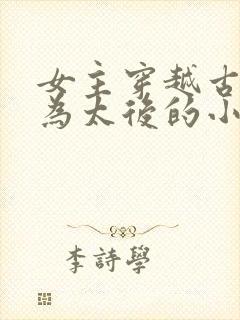 女主穿越古
為太後的小
李詩學